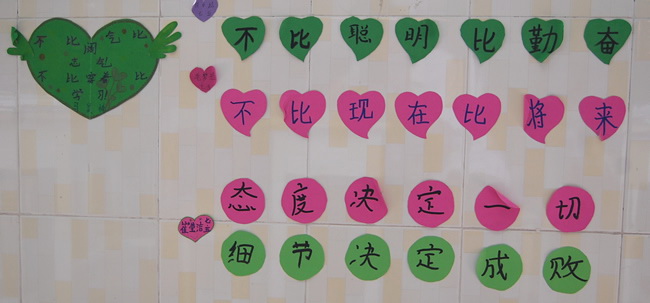 不比阔气比
志气
不比穿着比
学习
不比聪明比勤奋
不比现在比将来
态度决定一切
细节决定成败